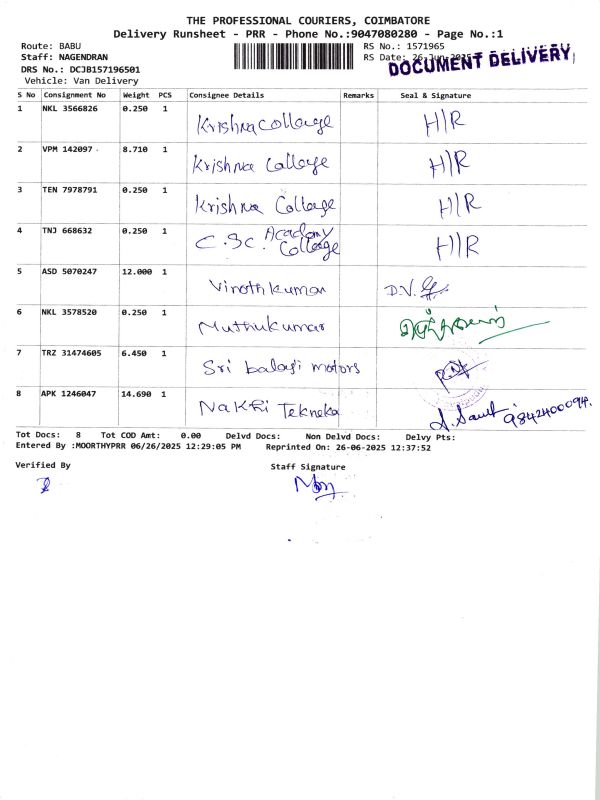 THE PROFESSIONAL COURIERS, COIMBATORE
Delivery Runsheet - PRR - Phone No.:9047080280 - Page No.:1
Route: BABU
Staff: NAGENDRAN
DRS No.: DCJB157196501
Vehicle: Van Delivery
RS No.: 1571965
RS Date: 26-Jun-2025
DOCUMENT DELIVERY
S No Consignment No Weight PCS Consignee Details Remarks Seal & Signature
1 NKL 3566826 0.250 1 Krishna Collage H/R
2 VPM 142097 8.710 1 Krishna Collage H/R
3 TEN 7978791 0.250 1 Krishna Collage H/R
4 TNJ 668632 0.250 1 C.Sc. Academy Collage H/R
5 ASD 5070247 12.000 1 Vinothkumar D.V.
6 NKL 3578520 0.250 1 Muthukumar
7 TRZ 31474605 6.450 1 Sri balaji motors
8 APK 1246047 14.690 1 Nakhi Tekneka 9842400094.
Tot Docs: 8 Tot COD Amt: 0.00 Delvd Docs: Non Delvd Docs: Delvy Pts:
Entered By :MOORTHYPRR 06/26/2025 12:29:05 PM Reprinted On: 26-06-2025 12:37:52
Verified By Staff Signature